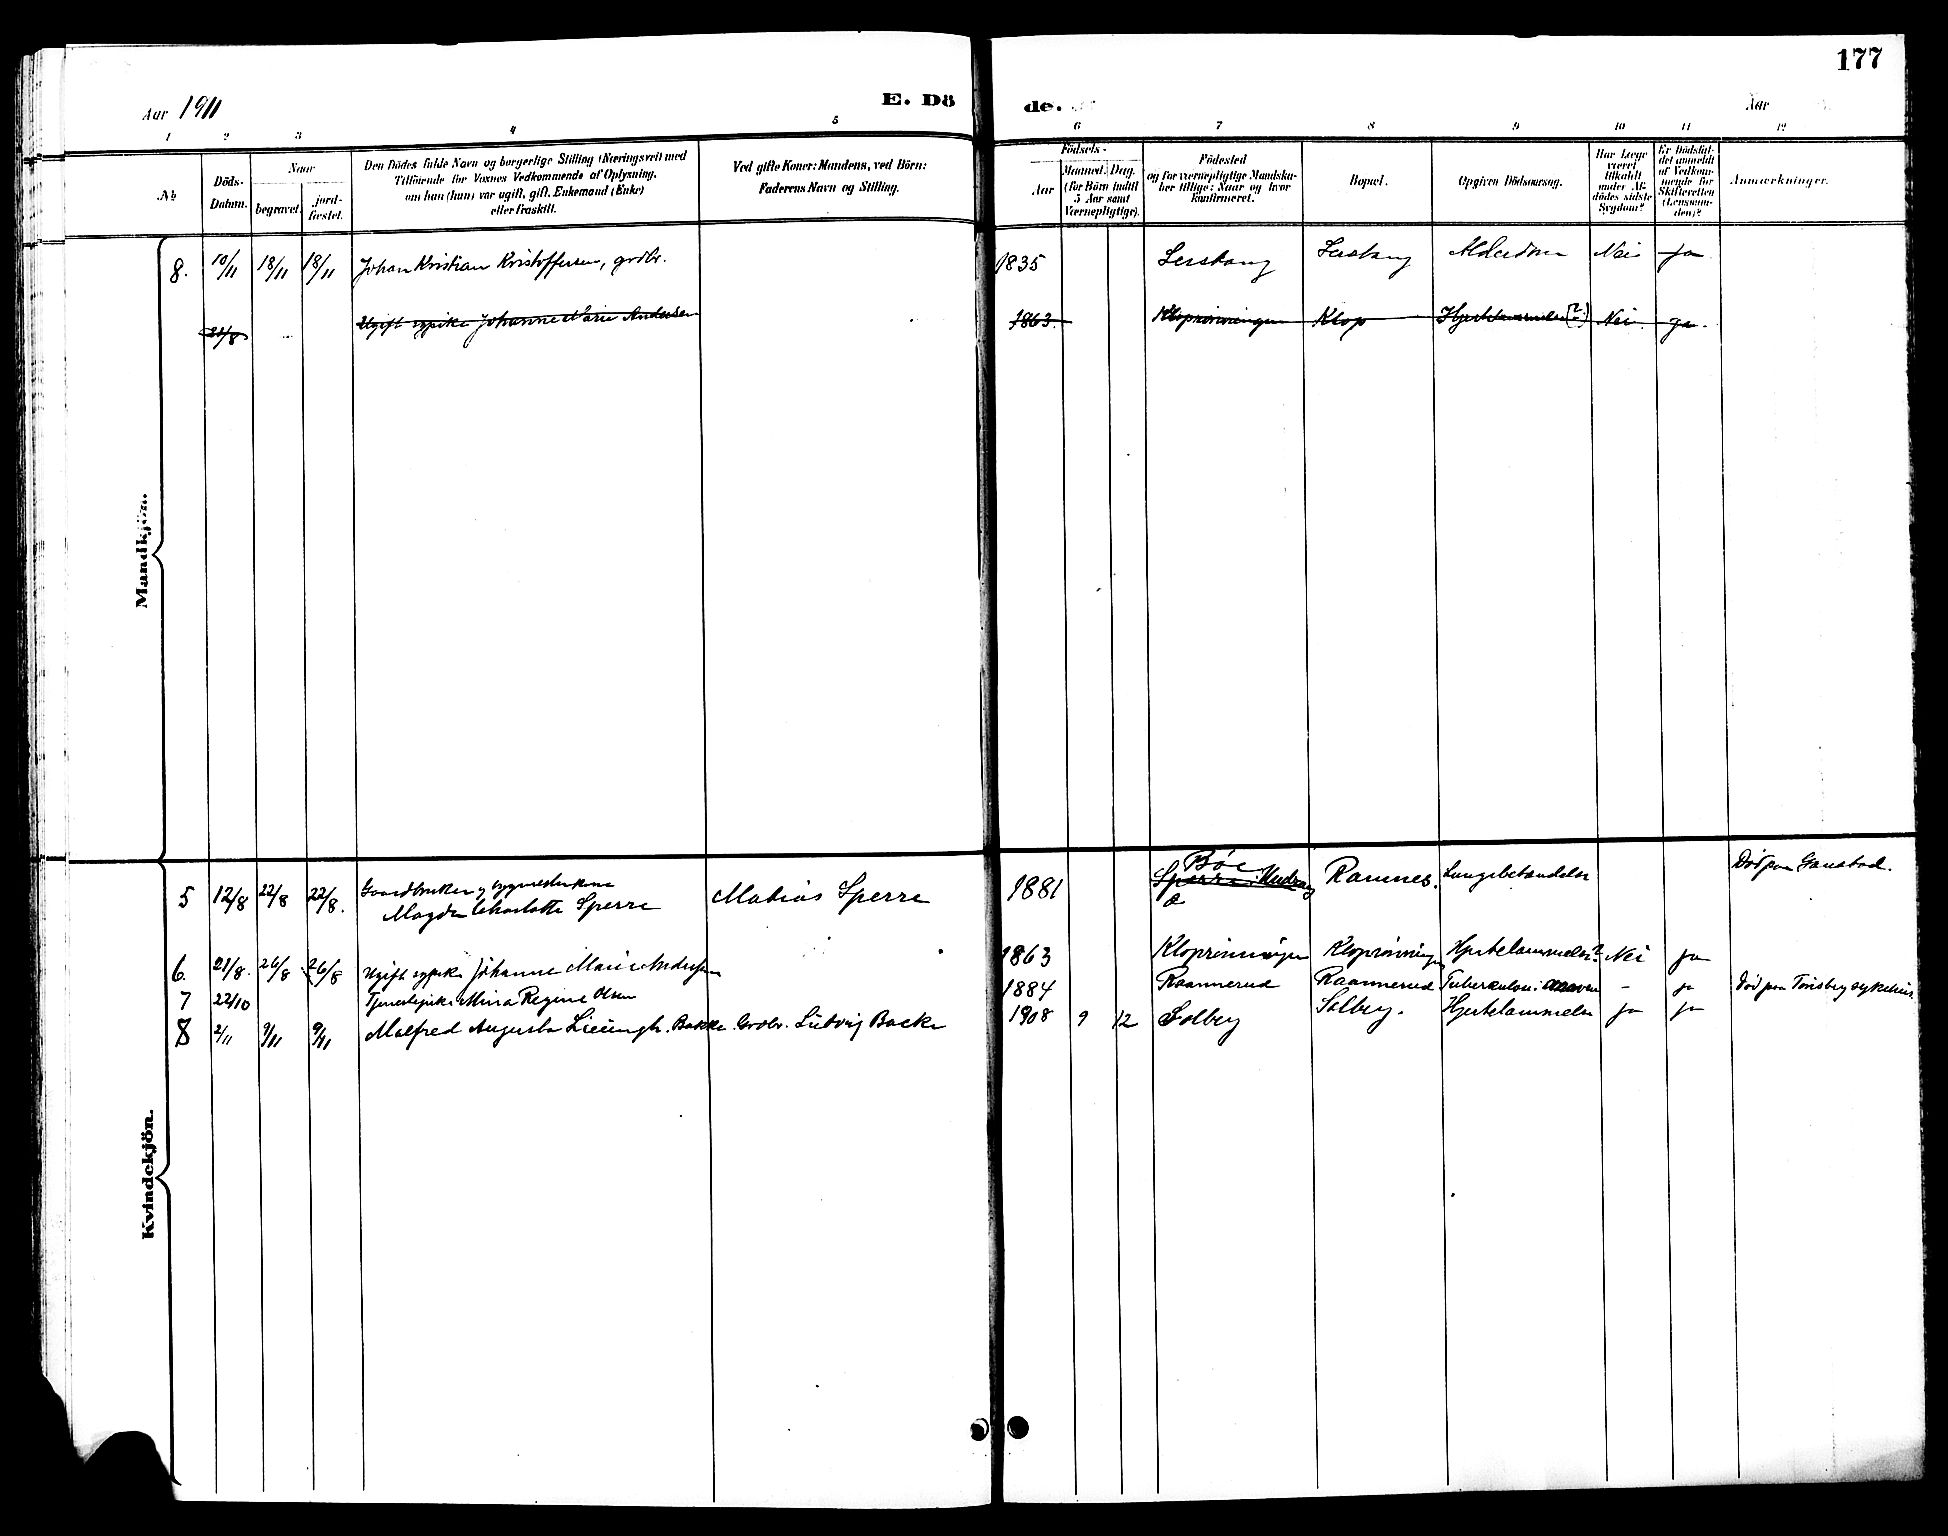 177
Aar 1911
E. Dö
de.
Aar
1 2 3 4 5 6 7 8 9 10 11 12
No
Döds-
Datum.
Naar
begravet.
jord-
fæstet.
Den Dödes fulde Navn og borgerlige Stilling (Næringsvei) med
Tilföiende for Voxnes Vedkommende af Oplysning,
om han (hun) var ugift, gift, Enkemand (Enke)
eller fraskilt.
Ved gifte Koner: Mandens, ved Börn:
Faderens Navn og Stilling.
Födsels-
Aar
Maaned. Dag.
(for Börn indtil
5 Aar samt
Værnepligtige).
Födested
og for værnepligtige Mandska-
ber tillige: Naar og hvor
konfirmeret.
Bopæl.
Opgiven Dödsaarsag.
Har Læge
været
tilkaldt
under Af-
dödes sidste
Sygdom?
Er Dödsfal-
det anmeldt
af Vedkom-
mende for
Skifteretten
(Lensman-
den)?
Anmærkninger.
Mandkjön.
8. 10/11 18/11 18/11 Johan Kristian Kristoffersen, grdbr. 1835 Leiskang Alderdom Nei Ja
21/8 Ugift sypike Johanne Marie Andersen 1863. Kloprønningen Klop Hjertelammelse (?) Nei ja.
Kvindekjön.
5 12/8 22/8 22/8. Gaardbruker og
Magda Charlotte Sperre Mathias Sperre 1881 Bøe Ramnes. Lungebetændelse Død paa
6. 21/8. 26/8 26/8 Ugift sypike Johanne Marie Andersen 1863 Kloprønningen Kloprønningen Hjertelammelse? Nei ja
7 22/10 Tjenestepike Mina Regine Olsen 1884 Raannerud Raannerud Tuberkulose i maven - ja Død paa Tønsberg sykehus.
8 2/11 9/11 9/11 Malfred Augusta Bakke Grdbr. Ludvig Backe 1908 9 12 Solberg Solberg. Hjertelammelse ja ja